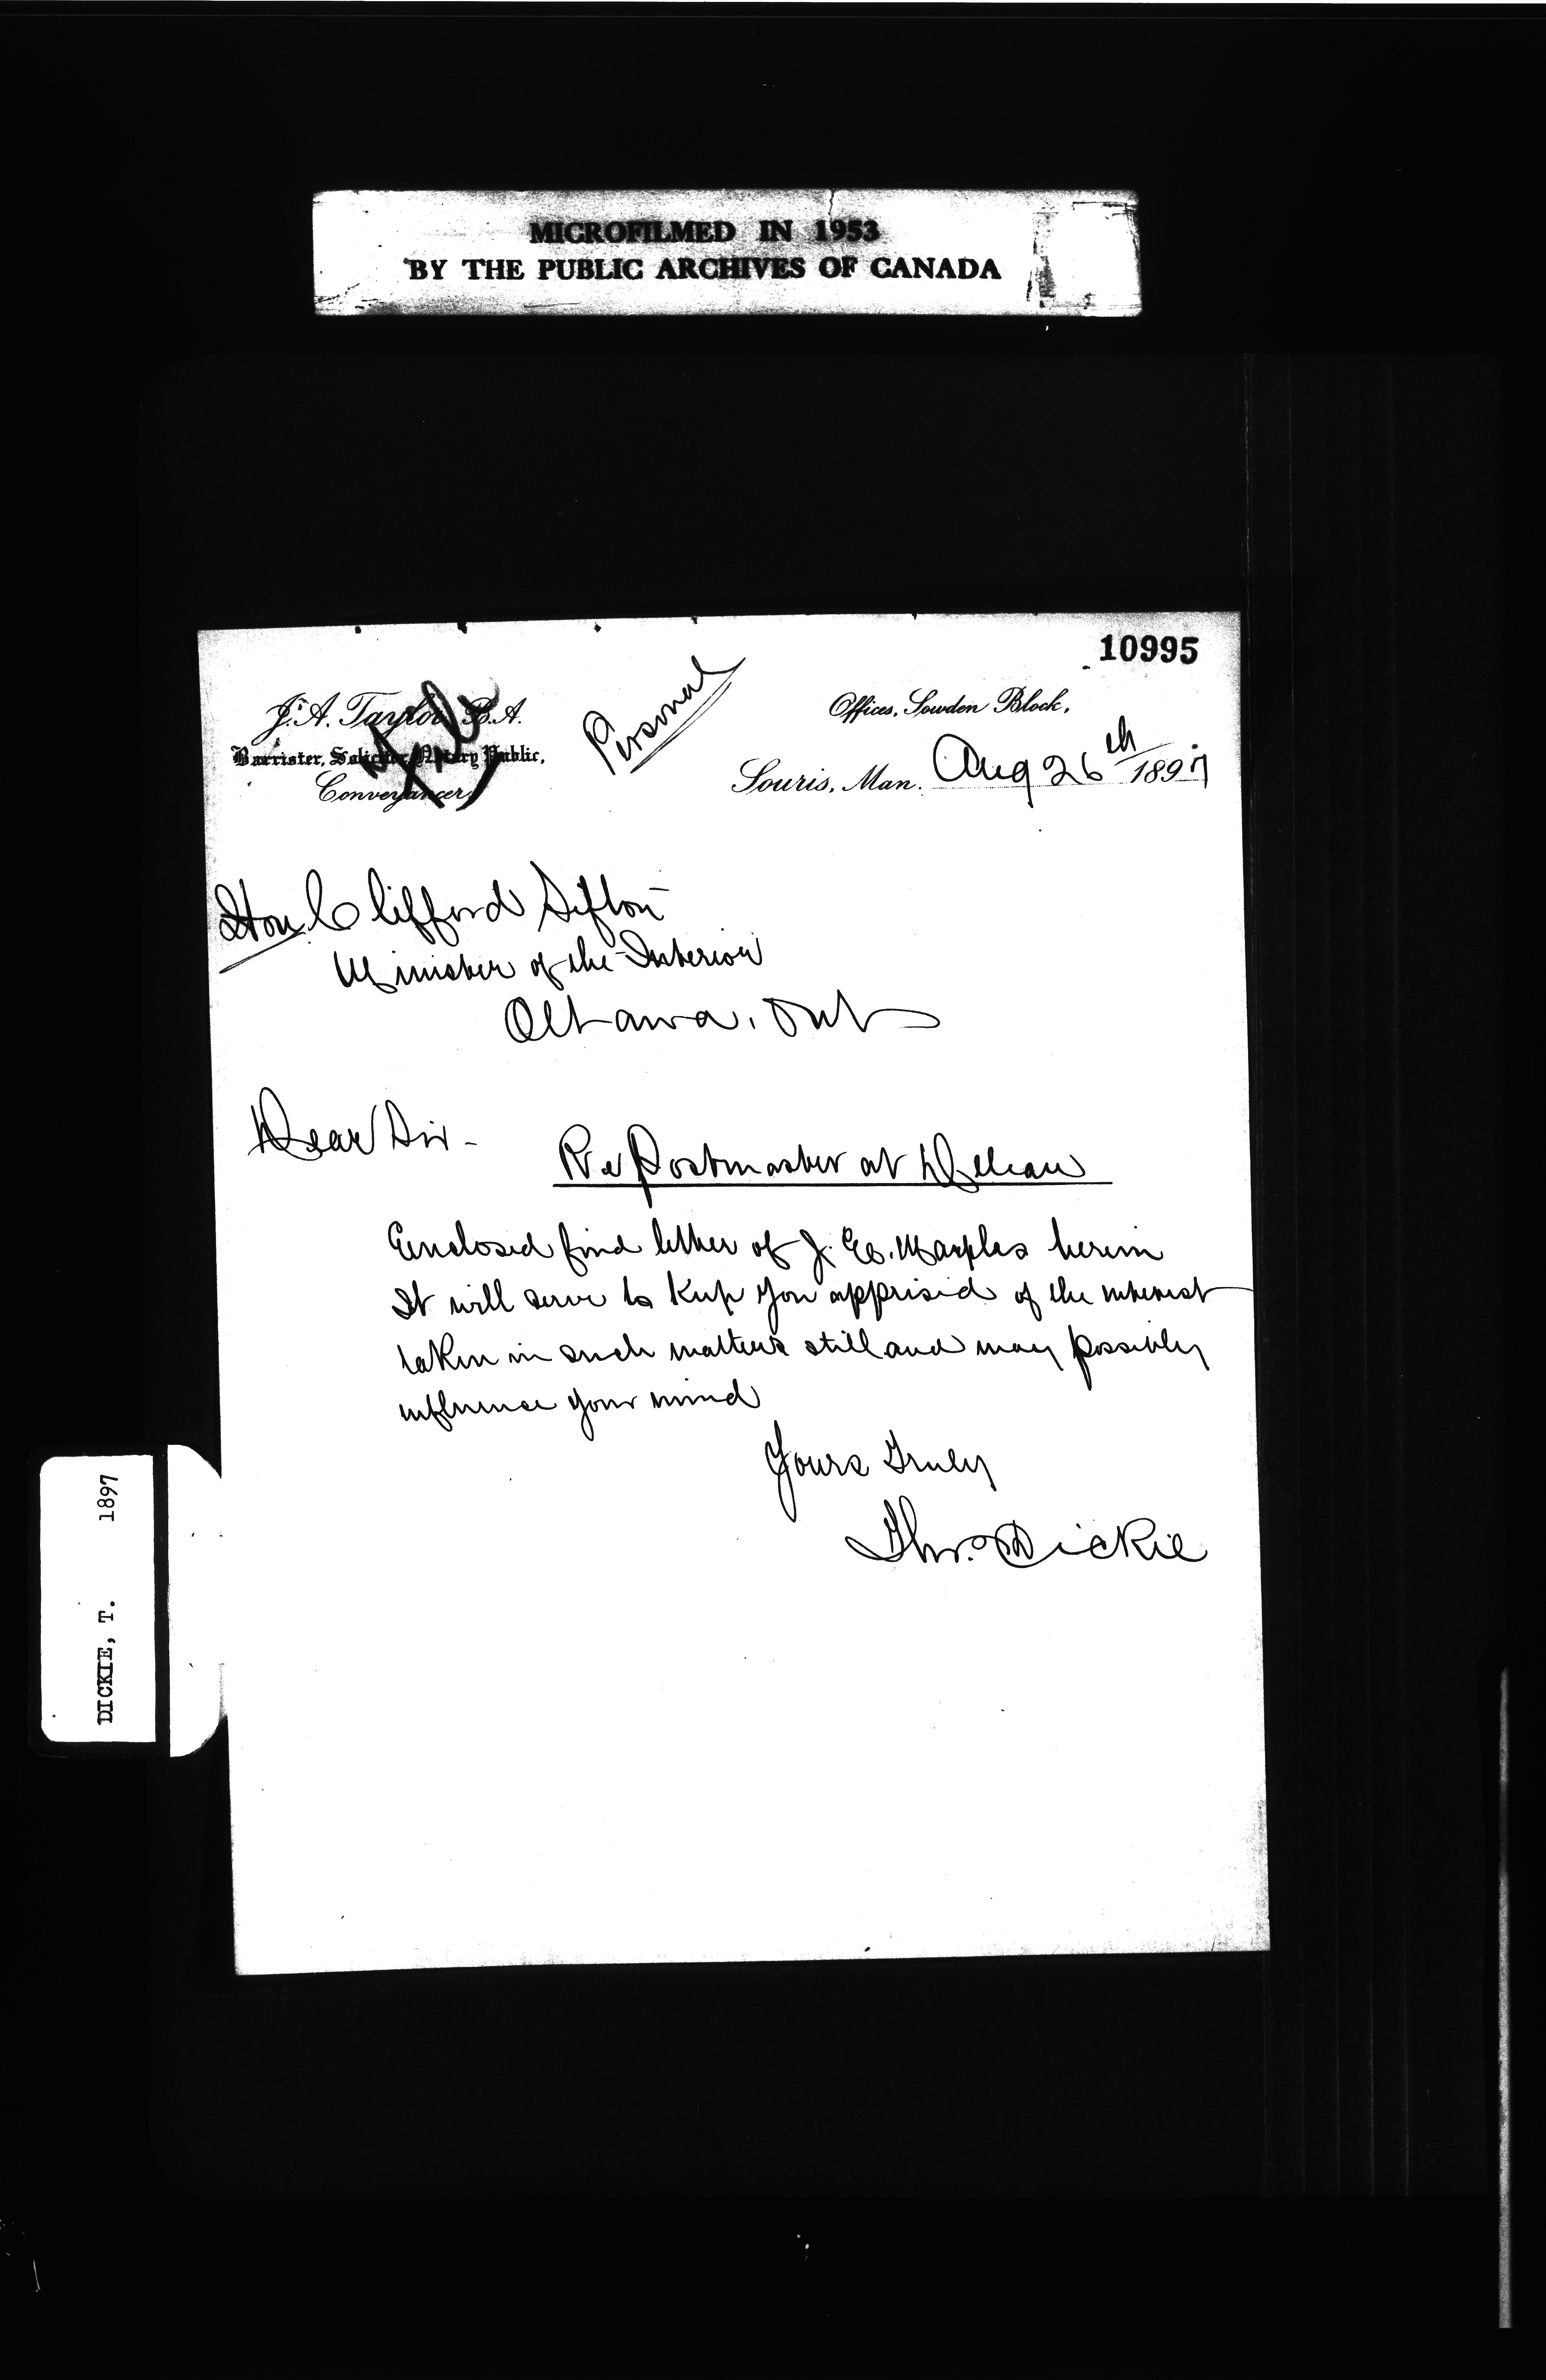 MICROFILMED IN 1953
BY THE PUBLIC ARCHIVES OF CANADA
10995
J. A. Taylor B.A.
Barrister, Solicitor, Notary Public,
Conveyancer,
Personal
Offices, Sowden Block,
Souris, Man. Aug 26th 1897
Hon. Clifford Sifton
Minister of the Interior
Ottawa, Ont
Dear Sir -
Re Postmaster at Deleau
Enclosed find letter of J. E. Marples herein
It will serve to keep you apprised of the interest
taken in such matters still and may possibly
influence your mind
Yours Truly
Thos. Dickie
DICKIE, T. 1897